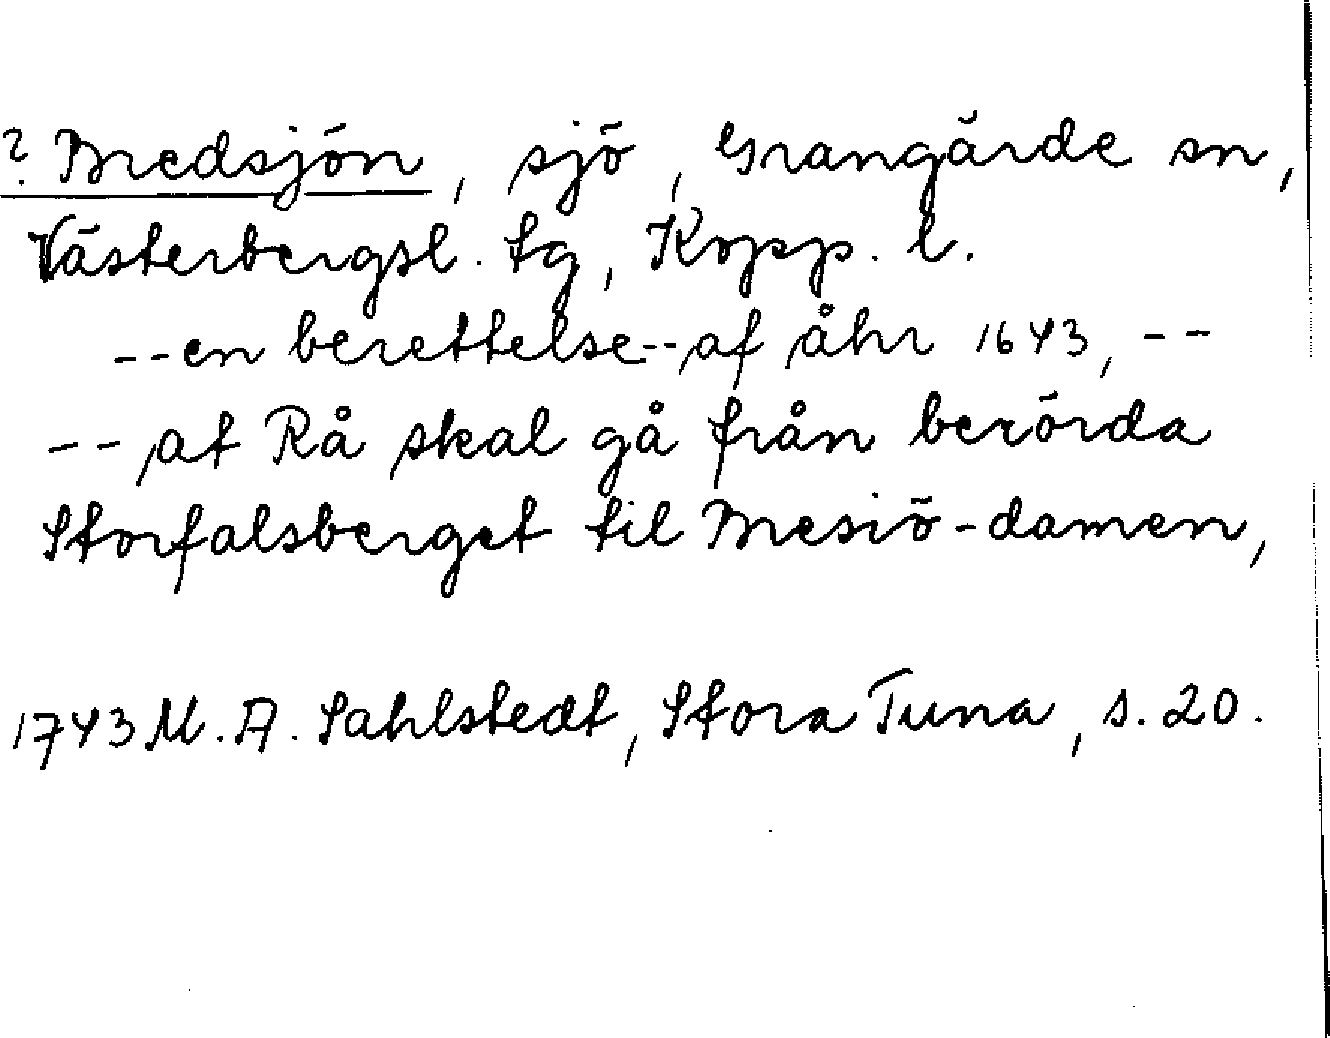 ? Bredsjön, sjö, Grangärde sn,
Västerbergsl. tg, Kopp. l.
--en berettelse--af åhr 1643, --
-- at Rå skal gå från berörda
Storfalsberget til Bresiö-damen,
1743 M. A. Sahlstedt, Stora Tuna, s. 20.